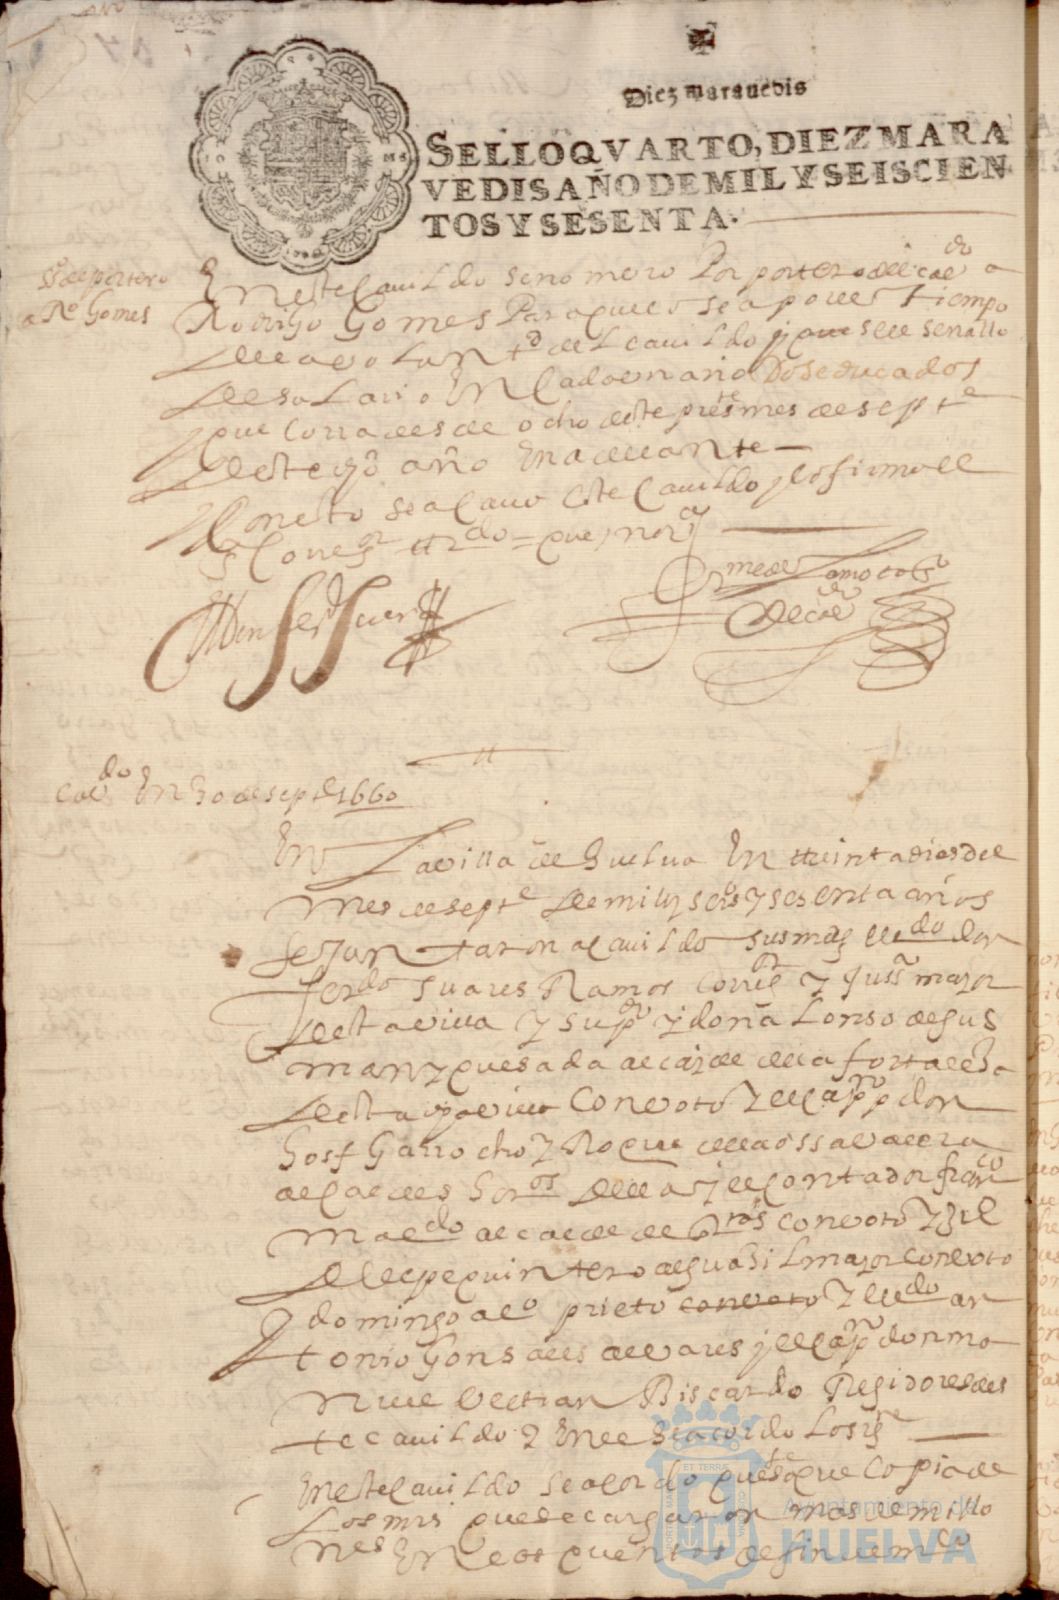 Diez maravedis
SELLO QVARTO, DIEZ MARA
VEDIS AÑO DE MIL Y SEISCIEN
TOS Y SESENTA.
de portero
a Ro Gomes
En este cauildo se nombro Por portero del cavdo a
Rodrigo Gomes Para que lo sea por el tiempo
de la voluntd del cauildo y que se le senallo
de salario En cada un año Dose ducados
que corra desde ocho deste preste mes de septe
deste año En adelante
Con esto se acauo este cauildo y lo firmo el
Sr Corregor =
Ldo don ferdo Suares
de la mota
de cavdo
cavdo En 30 de septe 1660
En La villa de Guelua En treinta dias del
mes de septe de mill y seiso y sesenta años
se juntaron a cauildo sus mds el ldo don
ferdo Suares Ramos Corregr y Justa maior
desta villa y su y don Alonso de Gus
man y quesada alcaide de la fortalesa
desta villa con voto y el cappn don
Josf Garrocho y Roque de la ossa valera
alcaldes hors della y el contador franco
maldo alcalde de con voto y gil
de lepe quintero alguasil maior con voto
y domingo alo prieto con voto y el ldo an
tonio Gonsales de vares y el cappn don ma
nuel beltran Biscardo Regidores des
te cauildo y En el se acordo Lo sige
En este cauildo se acordo que saque copia de
Los mrs que se cargaron mas de millo
nes En los quentos de
Ayuntamiento de
HUELVA